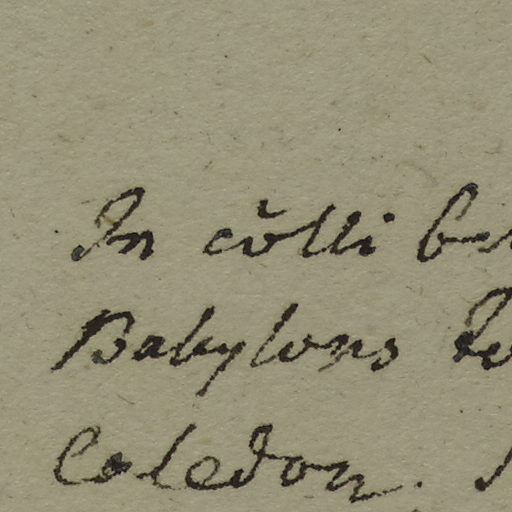 In cŏlli
Babylons
Caledon.